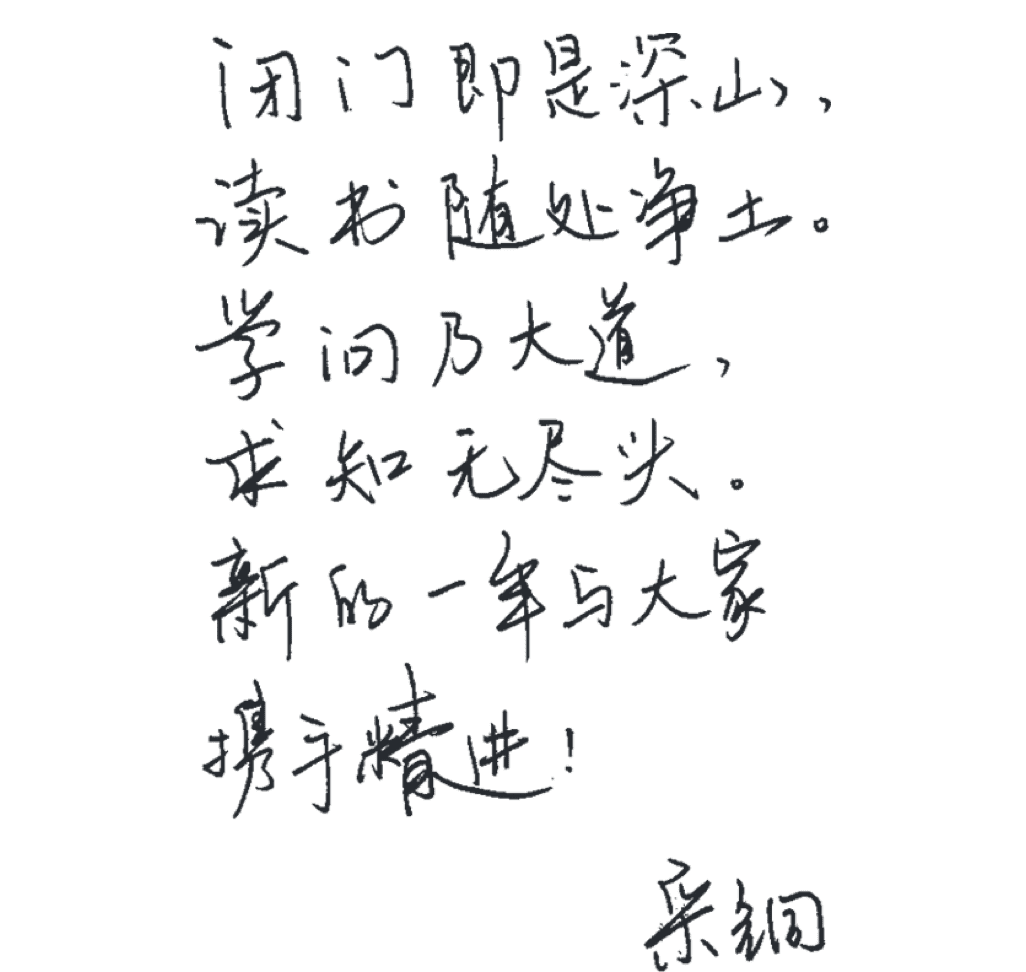 闭门即是深山，
读书随处净土。
学问乃大道，
求知无尽头。
新的一年与大家
携手精进！
采铜